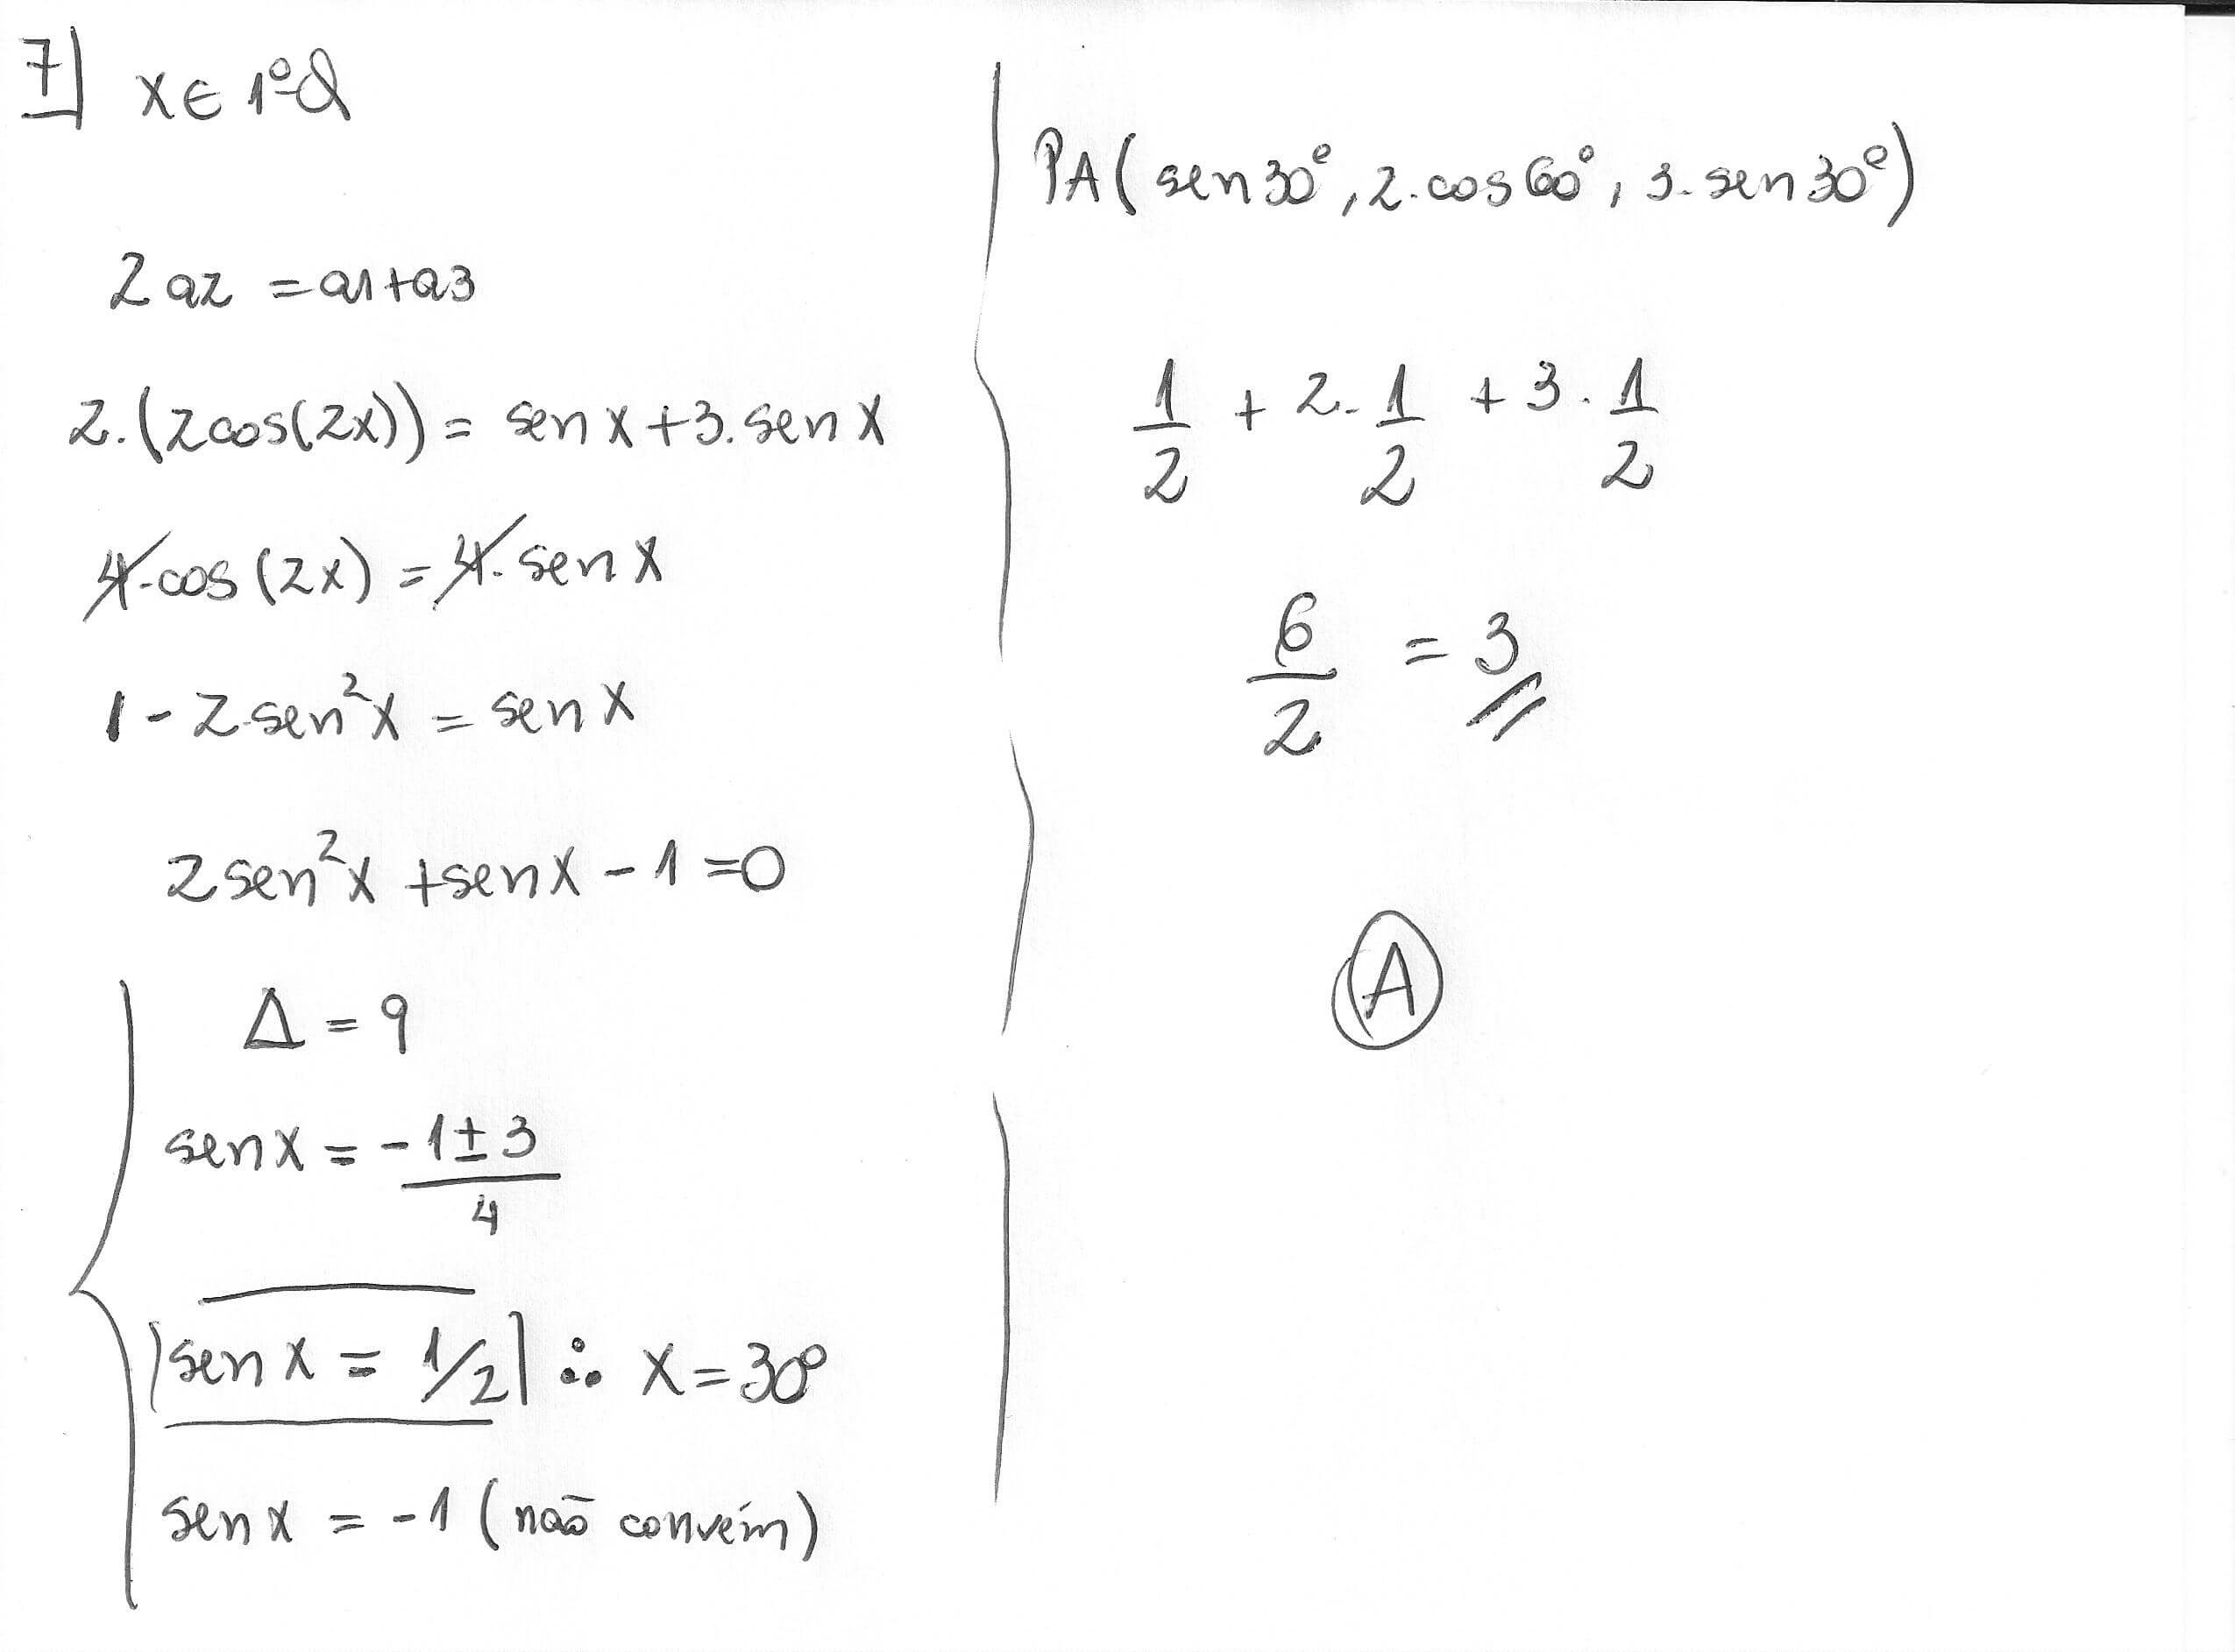 7] x ∈ 1ºQ
2 a2 = a1+a3
2.(2cos(2x)) = sen x+3.sen x
4.cos (2x) = 4. sen x
1 - 2.sen²x = sen x
2 sen²x +sen x - 1 =0
Δ = 9
sen x = -1±3
4
|sen x = 1/2| ∴ x=30º
sen x = -1 (não convém)
PA( sen 30º, 2.cos 60º, 3.sen 30º)
1/2 + 2.1/2 + 3.1/2
6/2 = 3
A